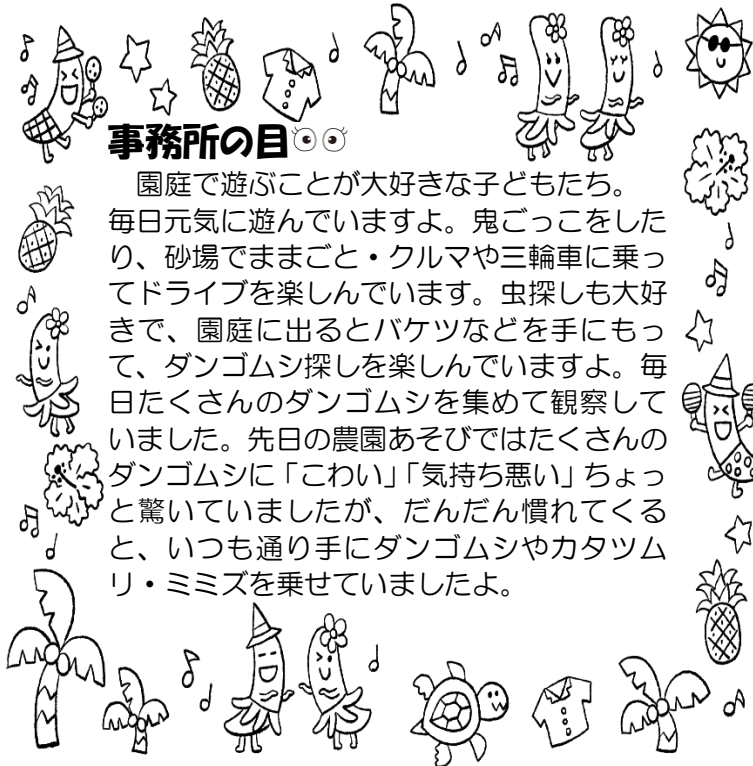 事務所の目👀
園庭で遊ぶことが大好きな子どもたち。
毎日元気に遊んでいますよ。鬼ごっこをした
り、砂場でままごと・クルマや三輪車に乗っ
てドライブを楽しんでいます。虫探しも大好
きで、園庭に出るとバケツなどを手にもっ
て、ダンゴムシ探しを楽しんでいますよ。毎
日たくさんのダンゴムシを集めて観察して
いました。先日の農園あそびではたくさんの
ダンゴムシに「こわい」「気持ち悪い」ちょっ
と驚いていましたが、だんだん慣れてくる
と、いつも通り手にダンゴムシやカタツム
リ・ミミズを乗せていましたよ。